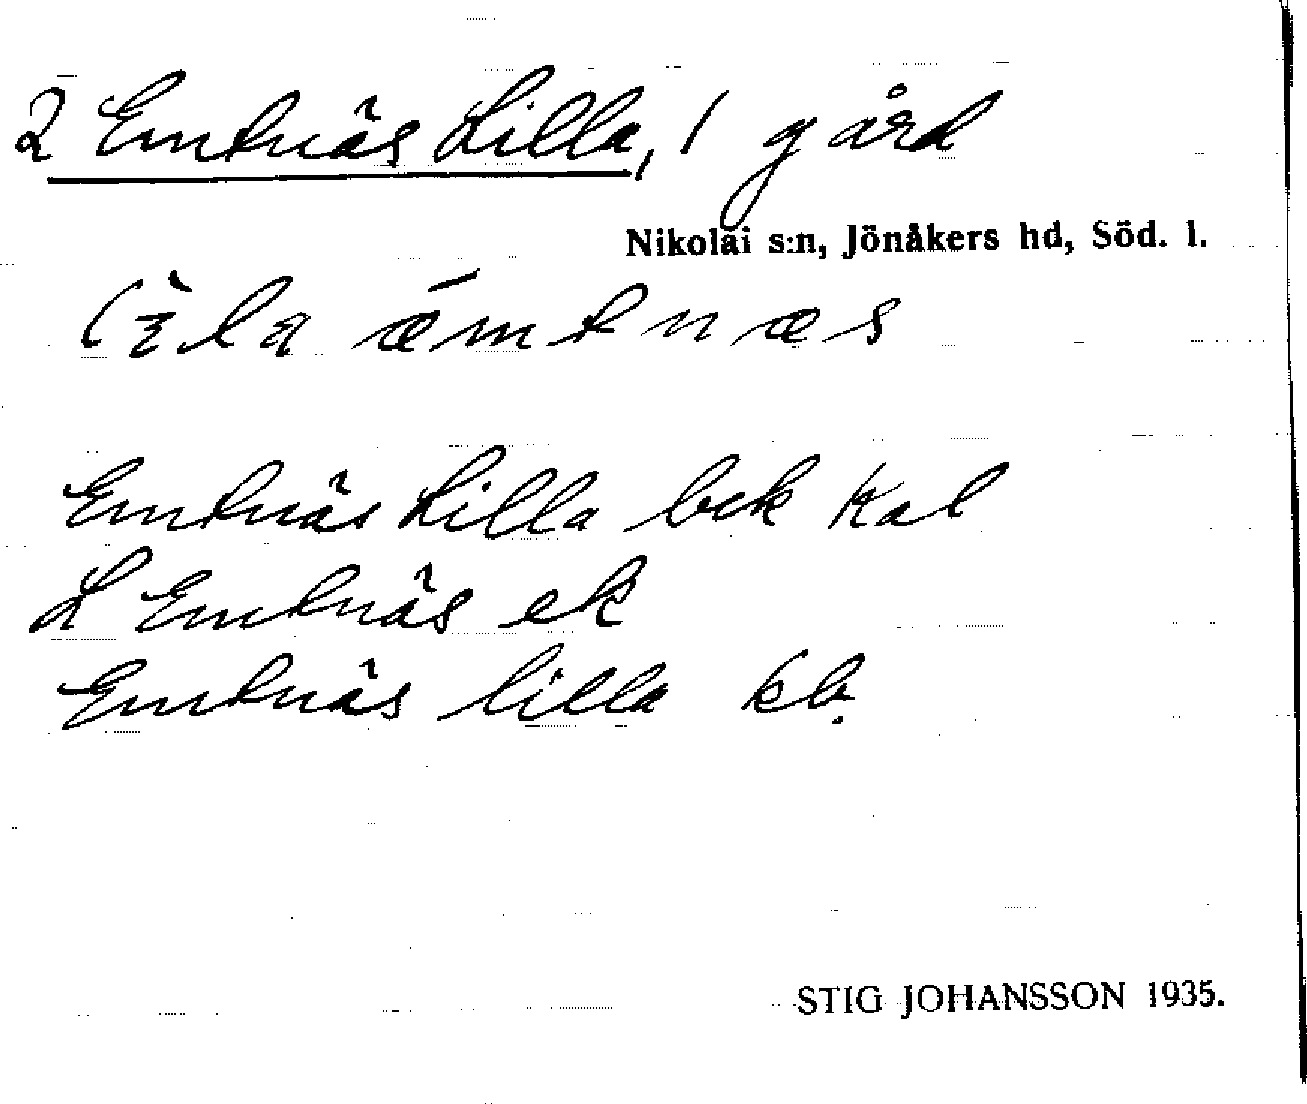 2 Emtnäs Lilla, 1 gård
Nikolai s:n, Jönåkers hd, Söd. l.
Emtnäs Lilla bek Kal
L Emtnäs ek
Emtnäs lilla kb.
STIG JOHANSSON 1935.